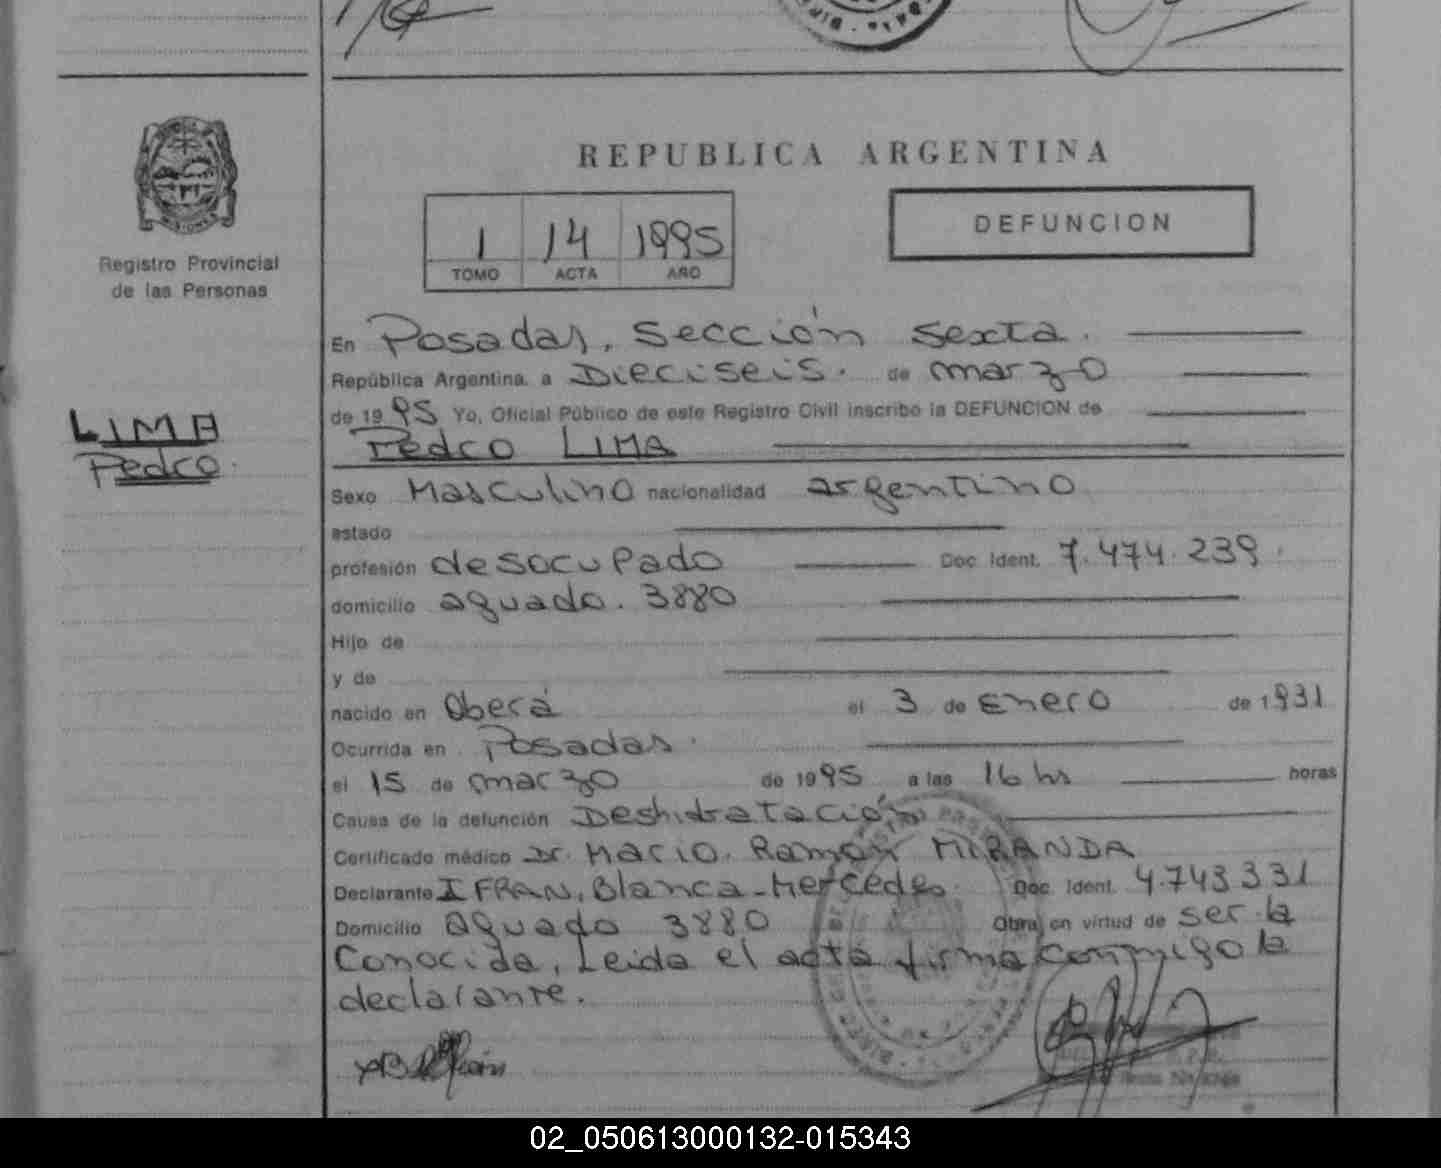 REPUBLICA ARGENTINA
1 14 1995
TOMO ACTA AÑO
DEFUNCION
Registro Provincial
de las Personas
LIMA
Pedro
En Posadas, Sección Sexta.
República Argentina, a Dieciseis. de marzo
de 1995 Yo, Oficial Público de este Registro Civil inscribo la DEFUNCION de
Pedro LIMA
Sexo Masculino nacionalidad argentino
estado
profesión desocupado Doc. Ident. 7.474.239.
domicilio aguado. 3880
Hijo de
y de
nacido en Oberá el 3 de Enero de 1931
Ocurrida en Posadas.
el 15 de marzo de 1995 a las 16 hs horas
Causa de la defunción Deshidratación
Certificado médico Dr. Mario. Ramón MIRANDA
Declarante IFRAN, Blanca-Mercedes. Doc. Ident. 4.743331
Domicilio aguado 3880 Obra en virtud de ser la
Conocida, Leida el acta firma conmigo la
declarante.
02_050613000132-015343